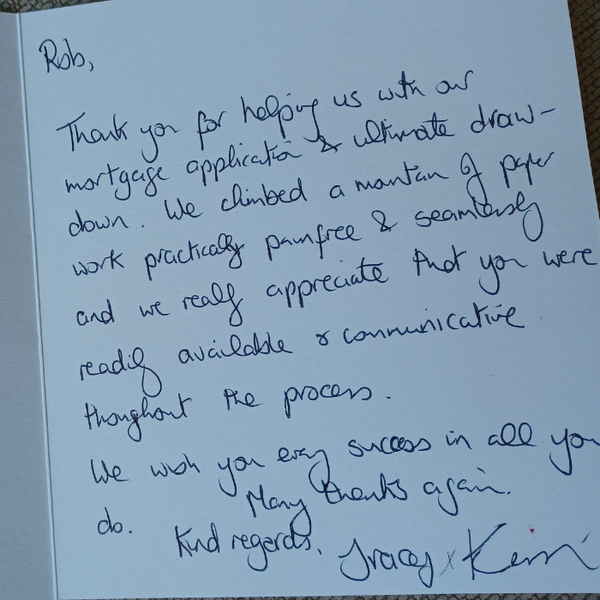 Rob,
Thank you for helping us with our
mortgage application & ultimate draw-
down. We climbed a mountain of paper
work practically painfree & seamlessly
and we really appreciate that you were
readily available & communicative
throughout the process.
We wish you every success in all you
do. Many thanks again.
Kind regards, Tracey x